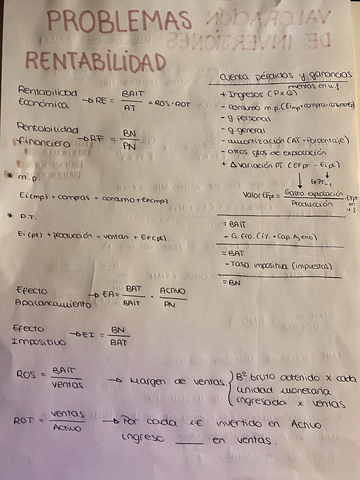 PROBLEMAS
RENTABILIDAD
Rentabilidad Económica → RE = BAIT / AT = ROS · ROT
Rentabilidad Financiera → RF = BN / PN
* m.p.
Ei(mp) + compras = consumo + Ef(mp)
* P.T.
Ei(pt) + producción = ventas + Ef(pt)
Efecto Apalancamiento → EA = BAT / BAIT · ACTIVO / PN
Efecto Impositivo → EI = BN / BAT
ROS = BAIT / ventas → Margen de ventas
Bº bruto obtenido x cada
unidad monetaria
ingresada x ventas
ROT = ventas / Activo → Por cada 1€ invertido en Activo
ingreso ____ en ventas.
cuenta pérdidas y ganancias
+ Ingresos (P x Q)
- consumo m.p.
- g personal
- g general
- amortización (AT · Porcentaje)
- otros gtos de explotación
+ Δ variación PT (Efpt - Eipt)
Valor Efpt = Gasto explotación / Producción
= BAIT
- G. Fro. (i% · Cap. Ajeno)
= BAT
- Tasa impositiva (impuestos)
= BN